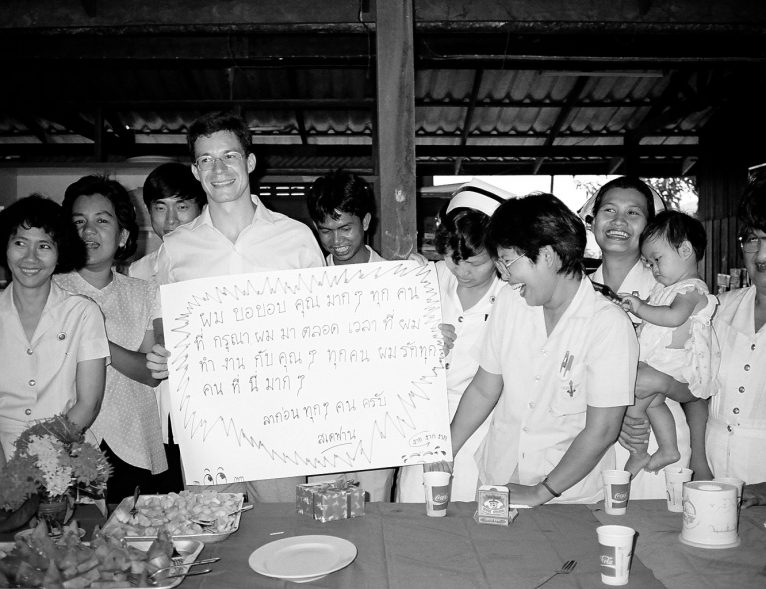 ผม ขอขอบ คุณ มาก ๆ ทุก คน
ที่ กรุณา ผม มา ตลอด เวลา ที่ ผม
ทำ งาน กับ คุณ ๆ ทุกคน ผม รักทุก
คน ที่ นี่ มาก ๆ
ลาก่อน ทุก ๆ คน ครับ
สเตฟาน